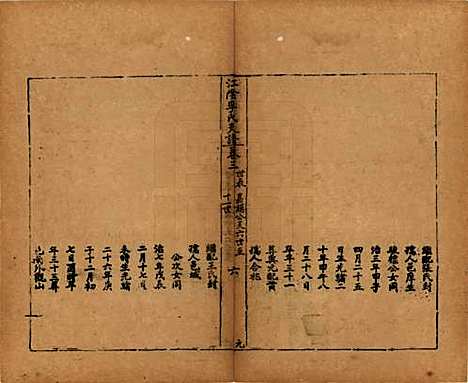 繼配張氏封
孺人邑庠生
毓禮公女同
治三年甲子
四月二十五
日生光緒二
十年甲午八
月二十八日
卒年三十一
與與元配黃
孺人合祔
江陰李氏支譜卷三
世表
十一世
六
繼配王氏封
孺人邑
公次女同
治七年戊辰
二月十六日
未時生光緒
二十六年庚
子十二月初
七日酉時卒
年三十三葬
邑南外觀山